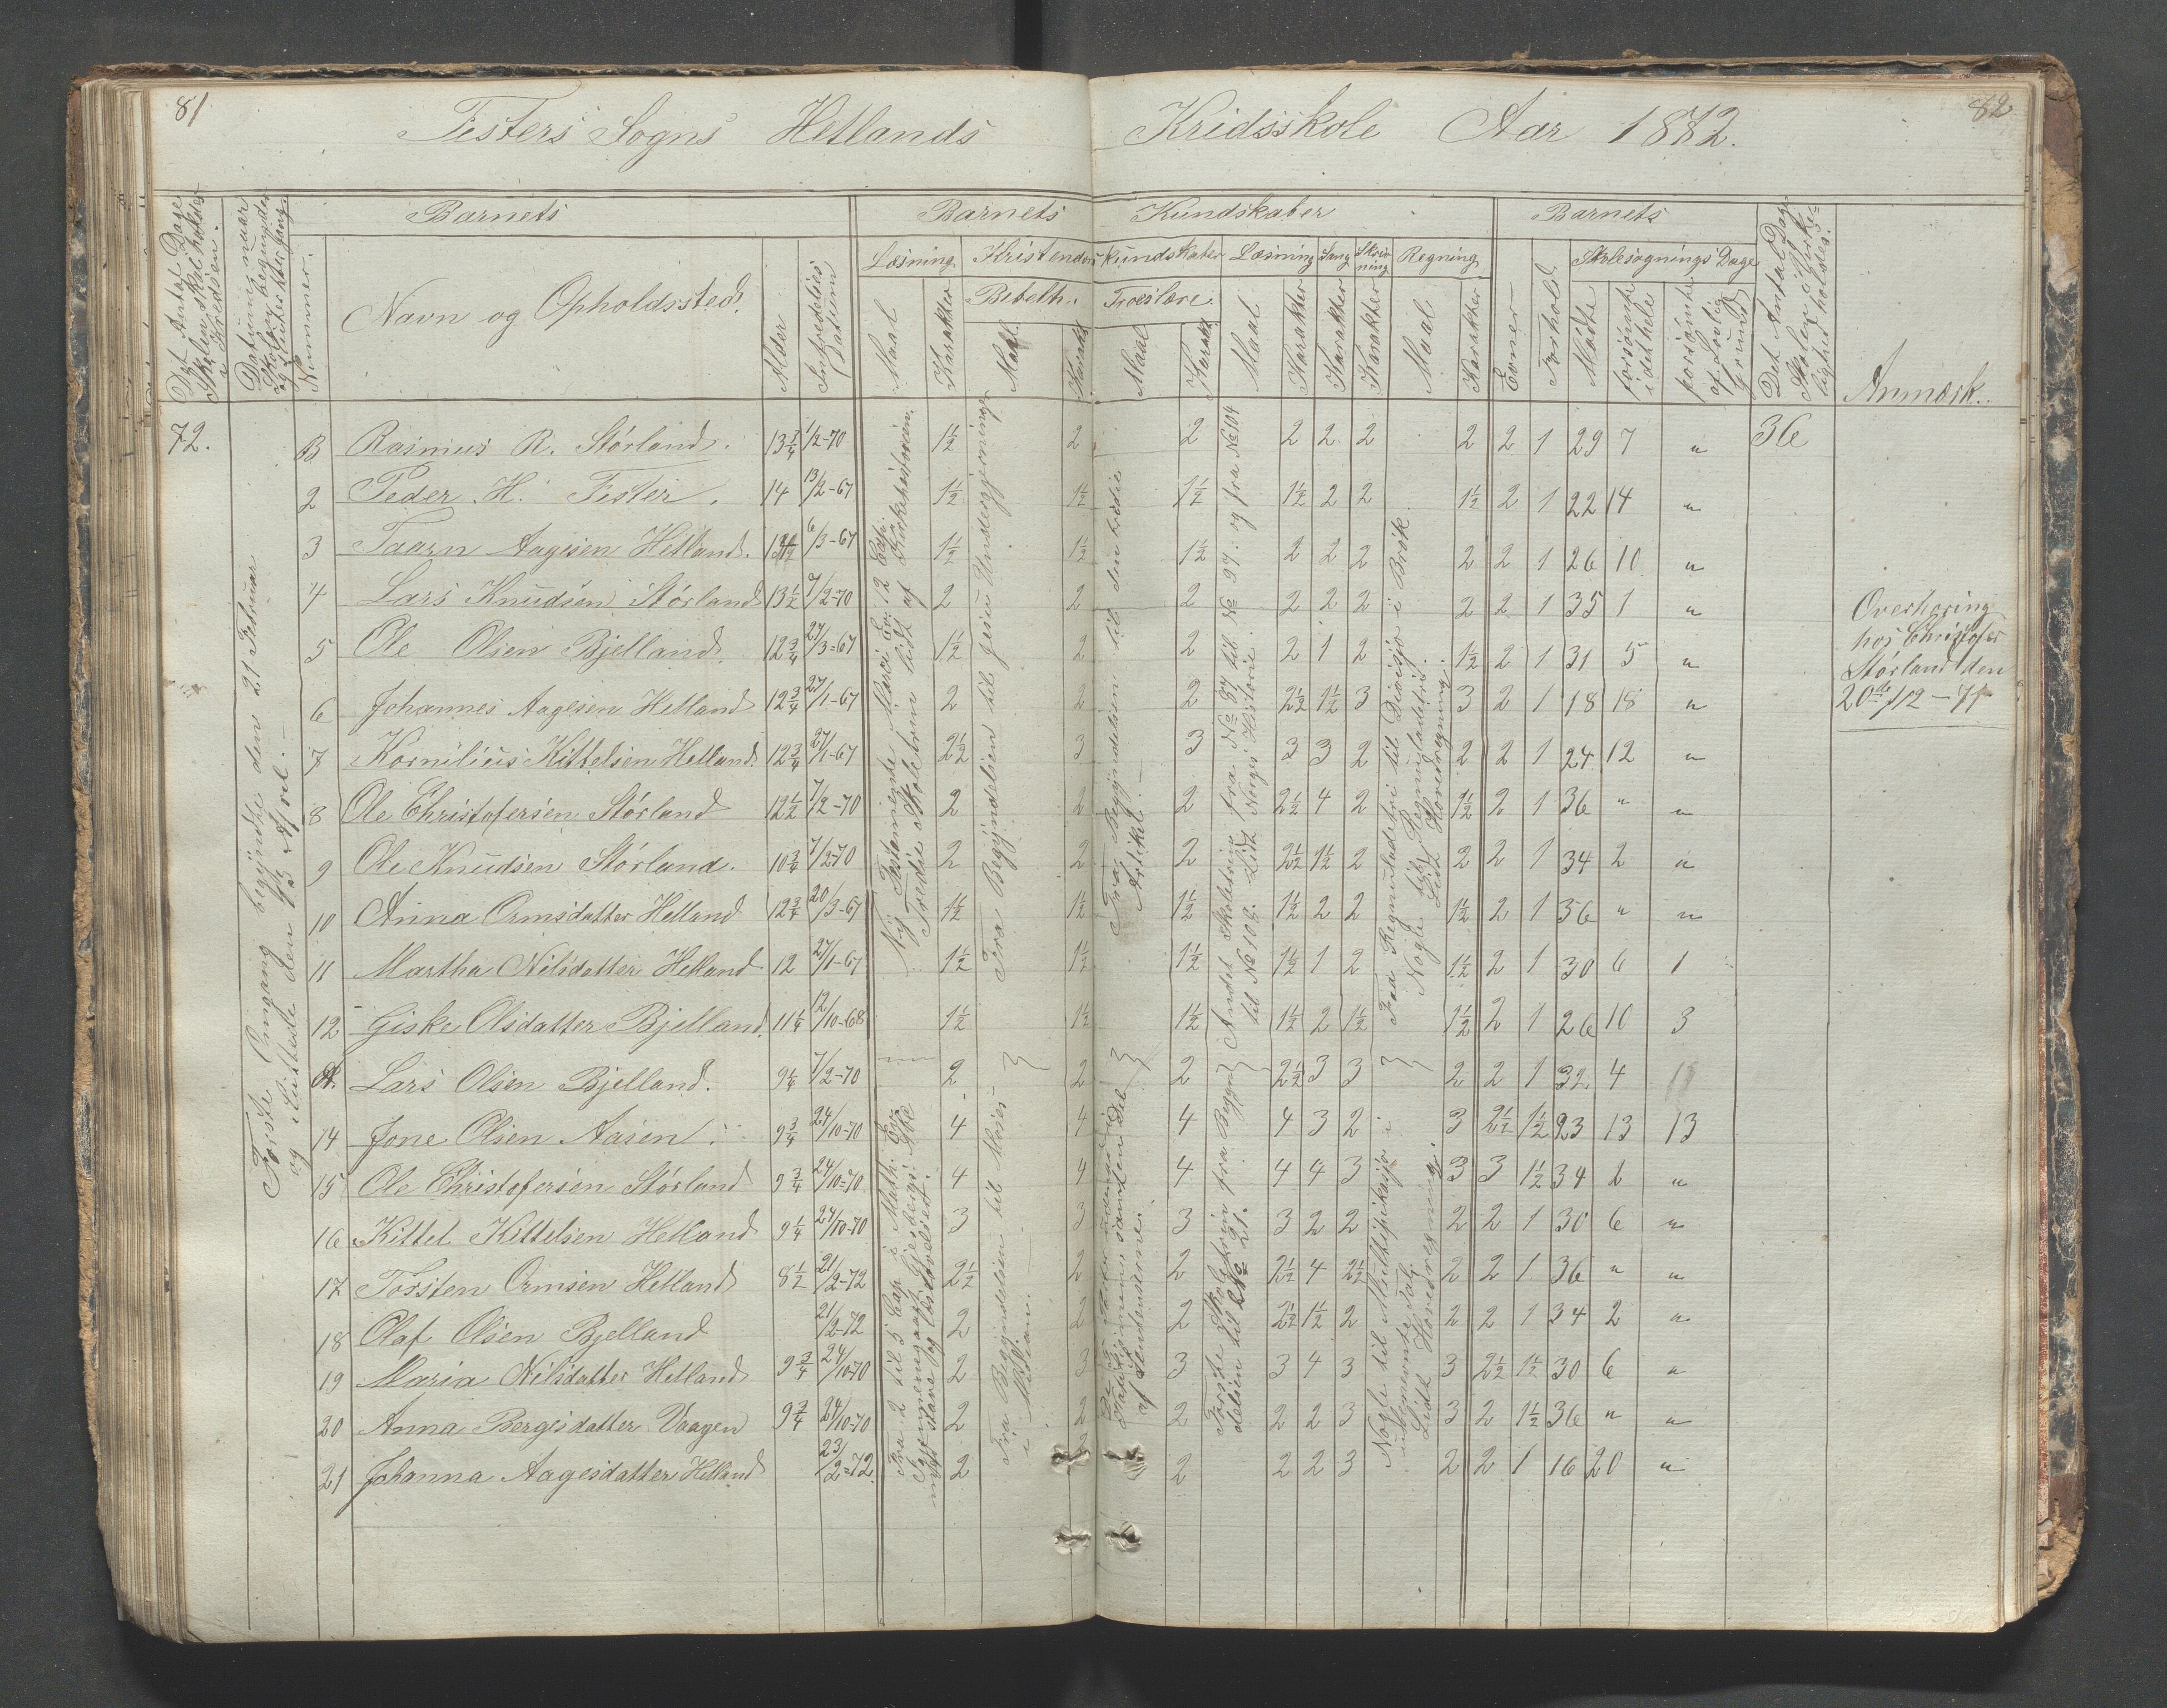 81
82
Fisters Sogns Hetlands Kridsskole Aar 1872.
Det Antal Dage Skolen skal holdes i Kredsen.
Datum naar Skolen begynder og slutter hver gang.
Nummer.
Barnets
Navn og Opholdssted.
Alder
Indtrædelses Datum
Barnets Kundskaber
Læsning
Maal
Karakter
Kristendomskundskaber
Bibelh.
Maal
Karakt.
Troeslære
Maal
Karakt.
Læsning
Maal
Karakter
Sang
Karakter
Skrivning
Karakter
Regning
Maal
Karakter
Barnets
Evner
Forhold
Skolesøgnings Dage
Mødte
forsømte i det hele
forsømte af Lovlig Grund
Det Antal Dage Skolen i Virkelighed holdes.
Anmærk.
72.
Første Omgang begyndte den 21 Februar
og sluttede den 4/5 April.
B Rasmus R. Størland. 13 3/4 1/2-70 1 1/2 2 2 2 2 2 2 2 1 29 7 " 36
2 Peder H. Fister. 14 13/2-67 1 1/2 1 1/2 1 1/2 1 1/2 2 2 1 1/2 2 1 22 14 "
3 Taarn Aagesen Hetland. 13 1/2 6/3-67 1 1/2 1 1/2 1 1/2 2 2 2 2 2 1 26 10 "
4 Lars Knudsen Størland 13 1/2 7/2-70 2 2 2 2 2 2 2 2 1 35 1 "
5 Ole Olsen Bjelland. 12 3/4 27/3-67 1 1/2 2 2 2 1 2 1 1/2 2 1 31 5 "
6 Johannes Aagesen Hetland 12 3/4 27/1-67 2 2 2 2 1/2 1 1/2 3 3 2 1 18 18 "
7 Kornilius Kittelsen Hetland. 12 3/4 27/1-67 2 1/2 3 3 3 3 2 2 2 1 24 12 "
8 Ole Christofersen Størland 12 1/2 7/2-70 2 2 2 2 1/2 4 2 1 1/2 2 1 36 " "
9 Ole Knudsen Størland. 10 3/4 7/2-70 2 2 2 2 1/2 1 1/2 2 2 2 1 34 2 "
10 Anna Ormsdatter Hetland 12 3/4 20/3-67 1 1/2 1 1/2 1 1/2 1 1/2 2 2 1 1/2 2 1 36 " "
11 Martha Nilsdatter Hetland 12 27/1-67 1 1/2 1 1/2 1 1/2 1 1/2 1 2 1 1/2 2 1 30 6 1
12 Giske Olsdatter Bjelland. 11 1/4 12/10-68 1 1/2 1 1/2 1 1/2 1 1/2 2 1 1/2 1 1/2 2 1 26 10 3
A. Lars Olsen Bjelland. 9 1/4 7/2-70 2 2 2 2 1/2 3 3 2 2 1 32 4
14 Jone Olsen Aasen 9 3/4 24/10-70 4 4 4 4 3 2 3 2 1/2 1 1/2 23 13 13
15 Ole Christofersen Størland 9 3/4 24/10-70 4 4 4 4 4 3 3 3 1 1/2 34 2 "
16 Kittel Kittelsen Hetland 9 1/4 24/10-70 3 3 3 3 2 2 2 2 1 30 6 "
17 Tossten Ormsen Hetland 8 1/2 21/2-72 2 1/2 2 2 2 1/2 4 2 1/2 2 2 1 36 " "
18 Olaf Olsen Bjelland 21/2-72 2 2 2 2 1/2 1 1/2 2 2 2 1 34 2 "
19 Maria Nilsdatter Hetland 9 3/4 24/10-70 2 3 3 3 4 3 3 2 1/2 1 1/2 30 6 "
20 Anna Bergesdatter Vaagen 9 3/4 24/10-70 2 2 2 2 2 3 3 2 1 1/2 36 " "
21 Johanna Aagesdatter Hetland 23/2-72. 2 2 2 2 2 3 2 2 1 16 20 "
Ny Testamente Marci Ev. 12 Cap.
Tredie Skoletrin lidt af Kirkehistorien.
Fra Begyndelsen til Jesu Undergjerninger
Fra Begyndelsen til den tredie
Artikel.
Andet Skoletrin fra No 87 til No 97. og fra No 104
til No 109. Lidt Norges Historie.
Fra Regnusladetri til Divisjo i Brøk.
Nogle til Regnusladetri.
Lidt Hovedregning.
Fra 2 til 5 Cap i Math. Ev.
Igjennemgaaet Gjesdergs Abc
med stave og Indenadslæset.
Fra Begyndelsen til Moses
i Midian.
af Sendendene.
Første Skoletrin fra Begyndelsen til No 21.
Nogle til Multiplikasjo i
ubenævnte Tal.
Lidt Hovedregning.
Overhøring
hos Christofer
Størland den
20de/12-71